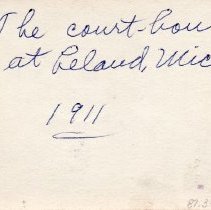 The court-hou
at Leland, Mic
1911
87.3